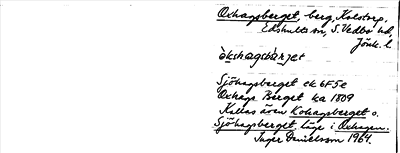 Oxhagsberget, berg, Kolstorp,
Edshults sn, S. Vedbo hd,
Jönk. l.
òkshagsbàrjet
Sjöhagsberget ek 6F5e
Oxhags Berget ka 1809
Kallas även Kohagsberget o.
Sjöhagsberget, läge i Oxhagen.
Inger Danielsson 1964.